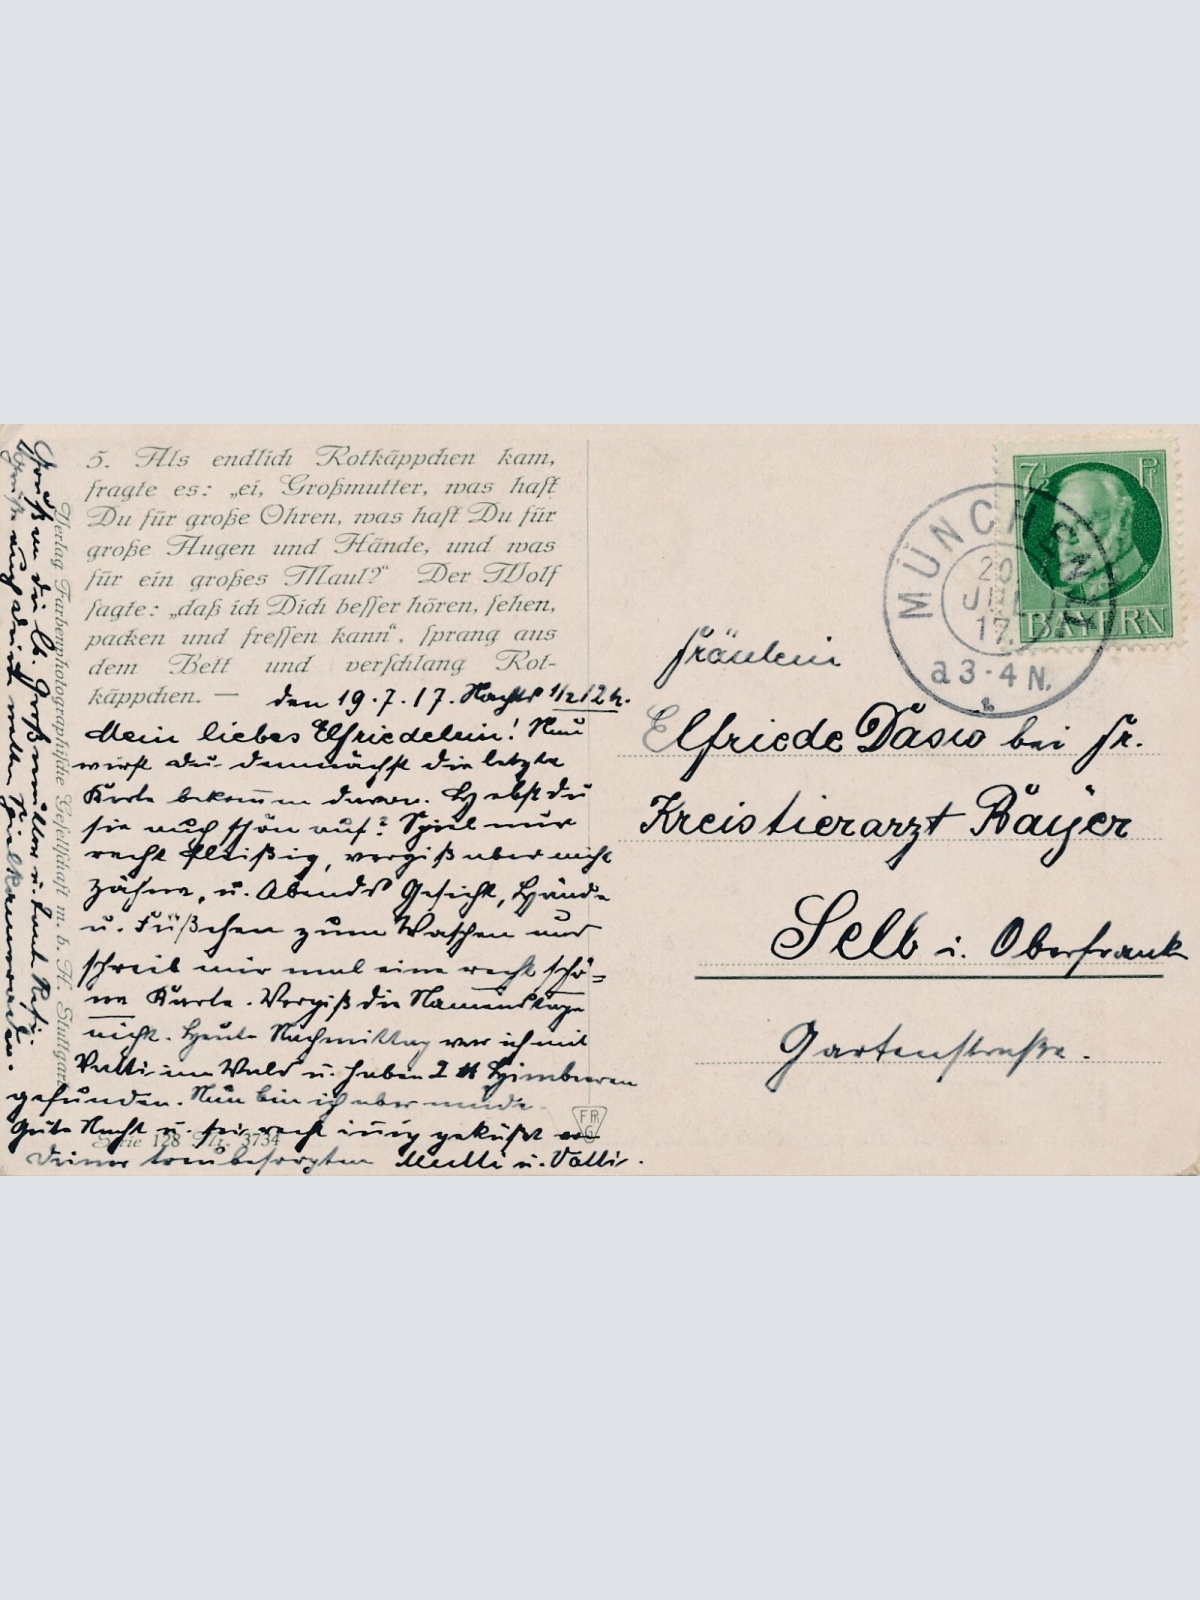 5. Als endlich Rotkäppchen kam,
fragte es: „ei, Großmutter, was hast
Du für große Ohren, was hast Du für
große Augen und Hände, und was
für ein großes Maul?“ Der Wolf
sagte: „daß ich Dich besser hören, sehen,
packen und fressen kann“, sprang aus
dem Bett und verschlang Rot-
käppchen. —
den 19.7.17. Nachts 1/2 12 h.
Mein liebes Elfriedelein! Nun
wirst du demnächst die letzte
Karte bekommen davon. Hebst du
sie auch schön auf? Spiel nur
recht fleißig, vergiß aber nicht
Zähne, u. Abends Gesicht, Hände
u. Füßchen zum Waschen und
schreib mir mal eine recht schö=
ne Karte. Vergiß die Namenstage
nicht. Heute Nachmittag war ich mit
Vatti im Wald u. haben 2 ℔ Himbeeren
gefunden. Nun bin ich aber müde.
Gute Nacht u. sei recht innig geküßt von
Deiner treubesorgten Mutti u. Vatti.
Grüße die lb. Großmutter u. Tant Resi.
Grüße auch alle Spielkameraden.
Verlag Farbenphotographische Gesellschaft m. b. H. Stuttgart
Serie 128 Nr. 3734
FPhG
7½ Pf
BAYERN
MÜNCHEN
20
JUL
17.
a 3-4 N.
Fräulein
Elfriede Dasio bei Hr.
Kreistierarzt Bayer
Selb i. Oberfrank
Gartenstraße.